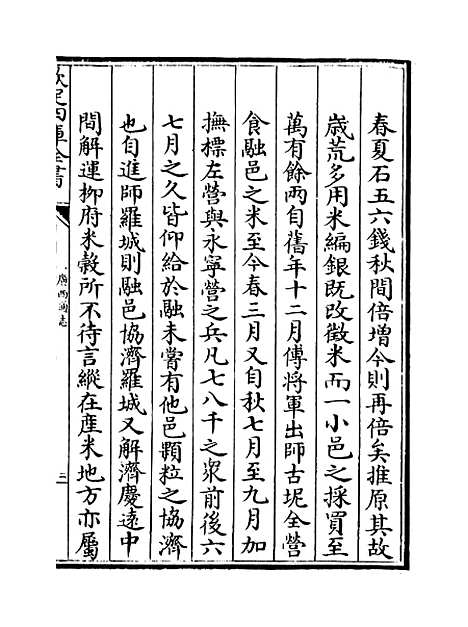 春夏石五六錢秋間倍增今則再倍矣推原其故
歲荒多用米編銀既改徵米而一小邑之採買至
萬有餘兩自舊年十二月傅將軍出師古坭全營
食融邑之米至今春三月又自秋七月至九月加
撫標左營與永寧營之兵凡七八千之衆前後六
七月之久皆仰給於融未嘗有他邑顆粒之協濟
也自進師羅城則融邑協濟羅城又解濟慶遠中
間解運柳府米穀所不待言縱在產米地方亦屬
欽定四庫全書
廣西通志
三